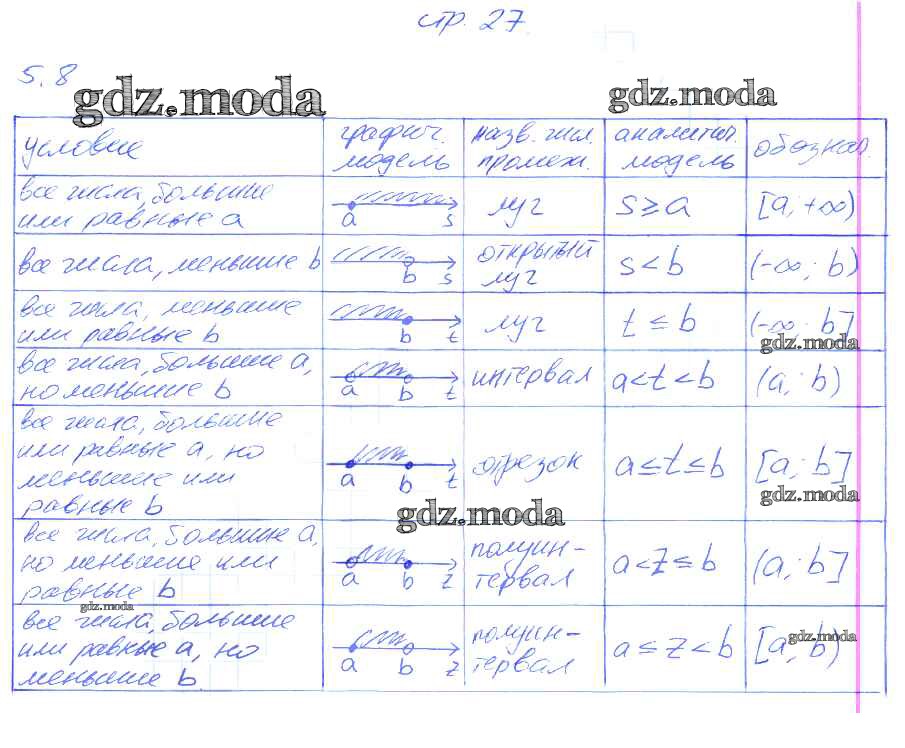 стр. 27.
5.8
gdz.moda gdz.moda
условие графич. модель назв. числ. промеж. аналитич. модель обознач.
все числа, большие или равные a a s луч s ≥ a [a, +∞)
все числа, меньшие b b s открытый луч s < b (-∞; b)
все числа, меньшие или равные b b t луч t ≤ b (-∞; b]
gdz.moda
все числа, большие a, но меньшие b a b t интервал a < t < b (a; b)
все числа, большие или равные a, но меньшие или равные b a b t отрезок a ≤ t ≤ b [a; b]
gdz.moda
gdz.moda
все числа, большие a, но меньшие или равные b a b z полуин-тервал a < z ≤ b (a; b]
gdz.moda
все числа, большие или равные a, но меньшие b a b z полуин-тервал a ≤ z < b [a; b)
gdz.moda